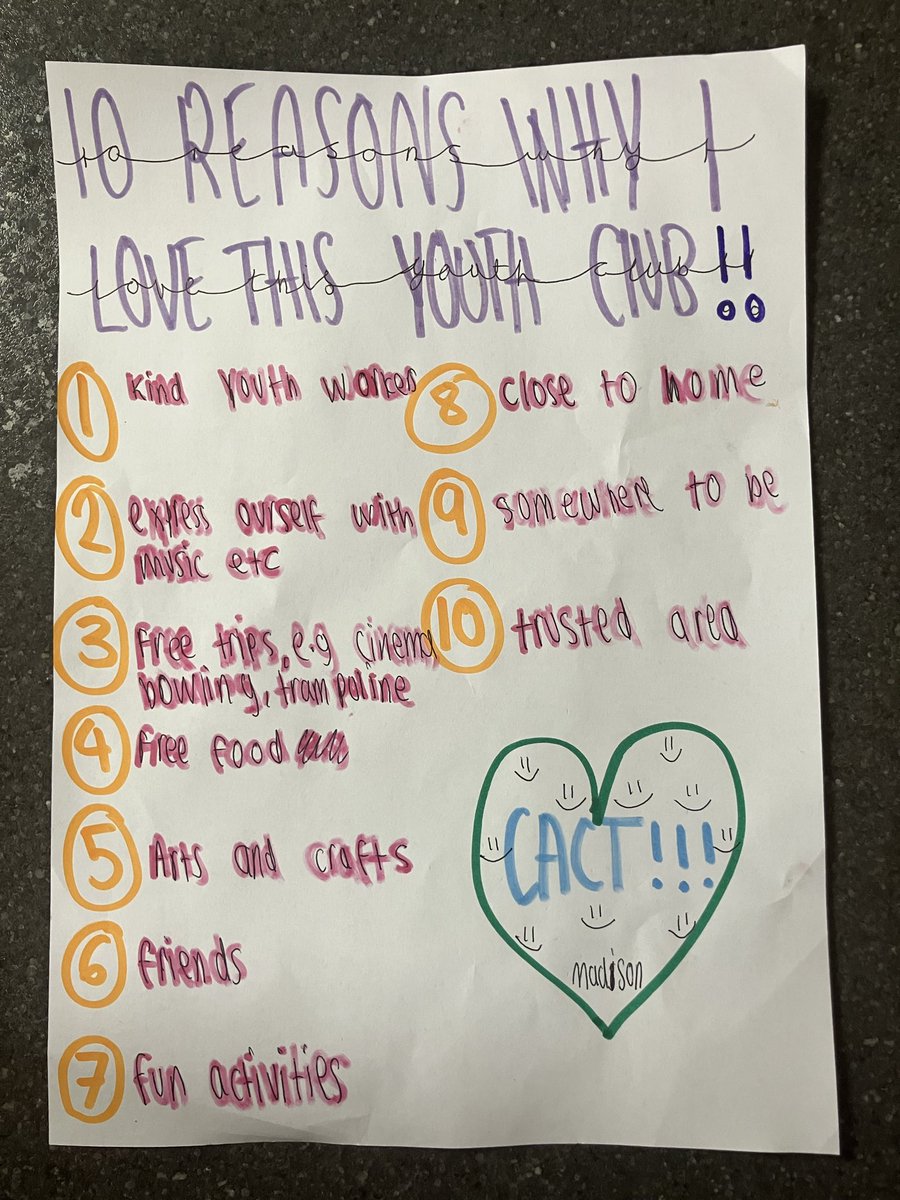 10 REASONS WHY I
10 reasons why I
LOVE THIS YOUTH CLUB!!
love this youth club!!
1 kind youth worker
2 express ourself with
music etc
3 Free trips, e.g cinema
bowling, trampoline
4 Free food
5 Arts and crafts
6 friends
7 fun activities
8 close to home
9 somewhere to be
10 trusted area
CACT!!!
madison